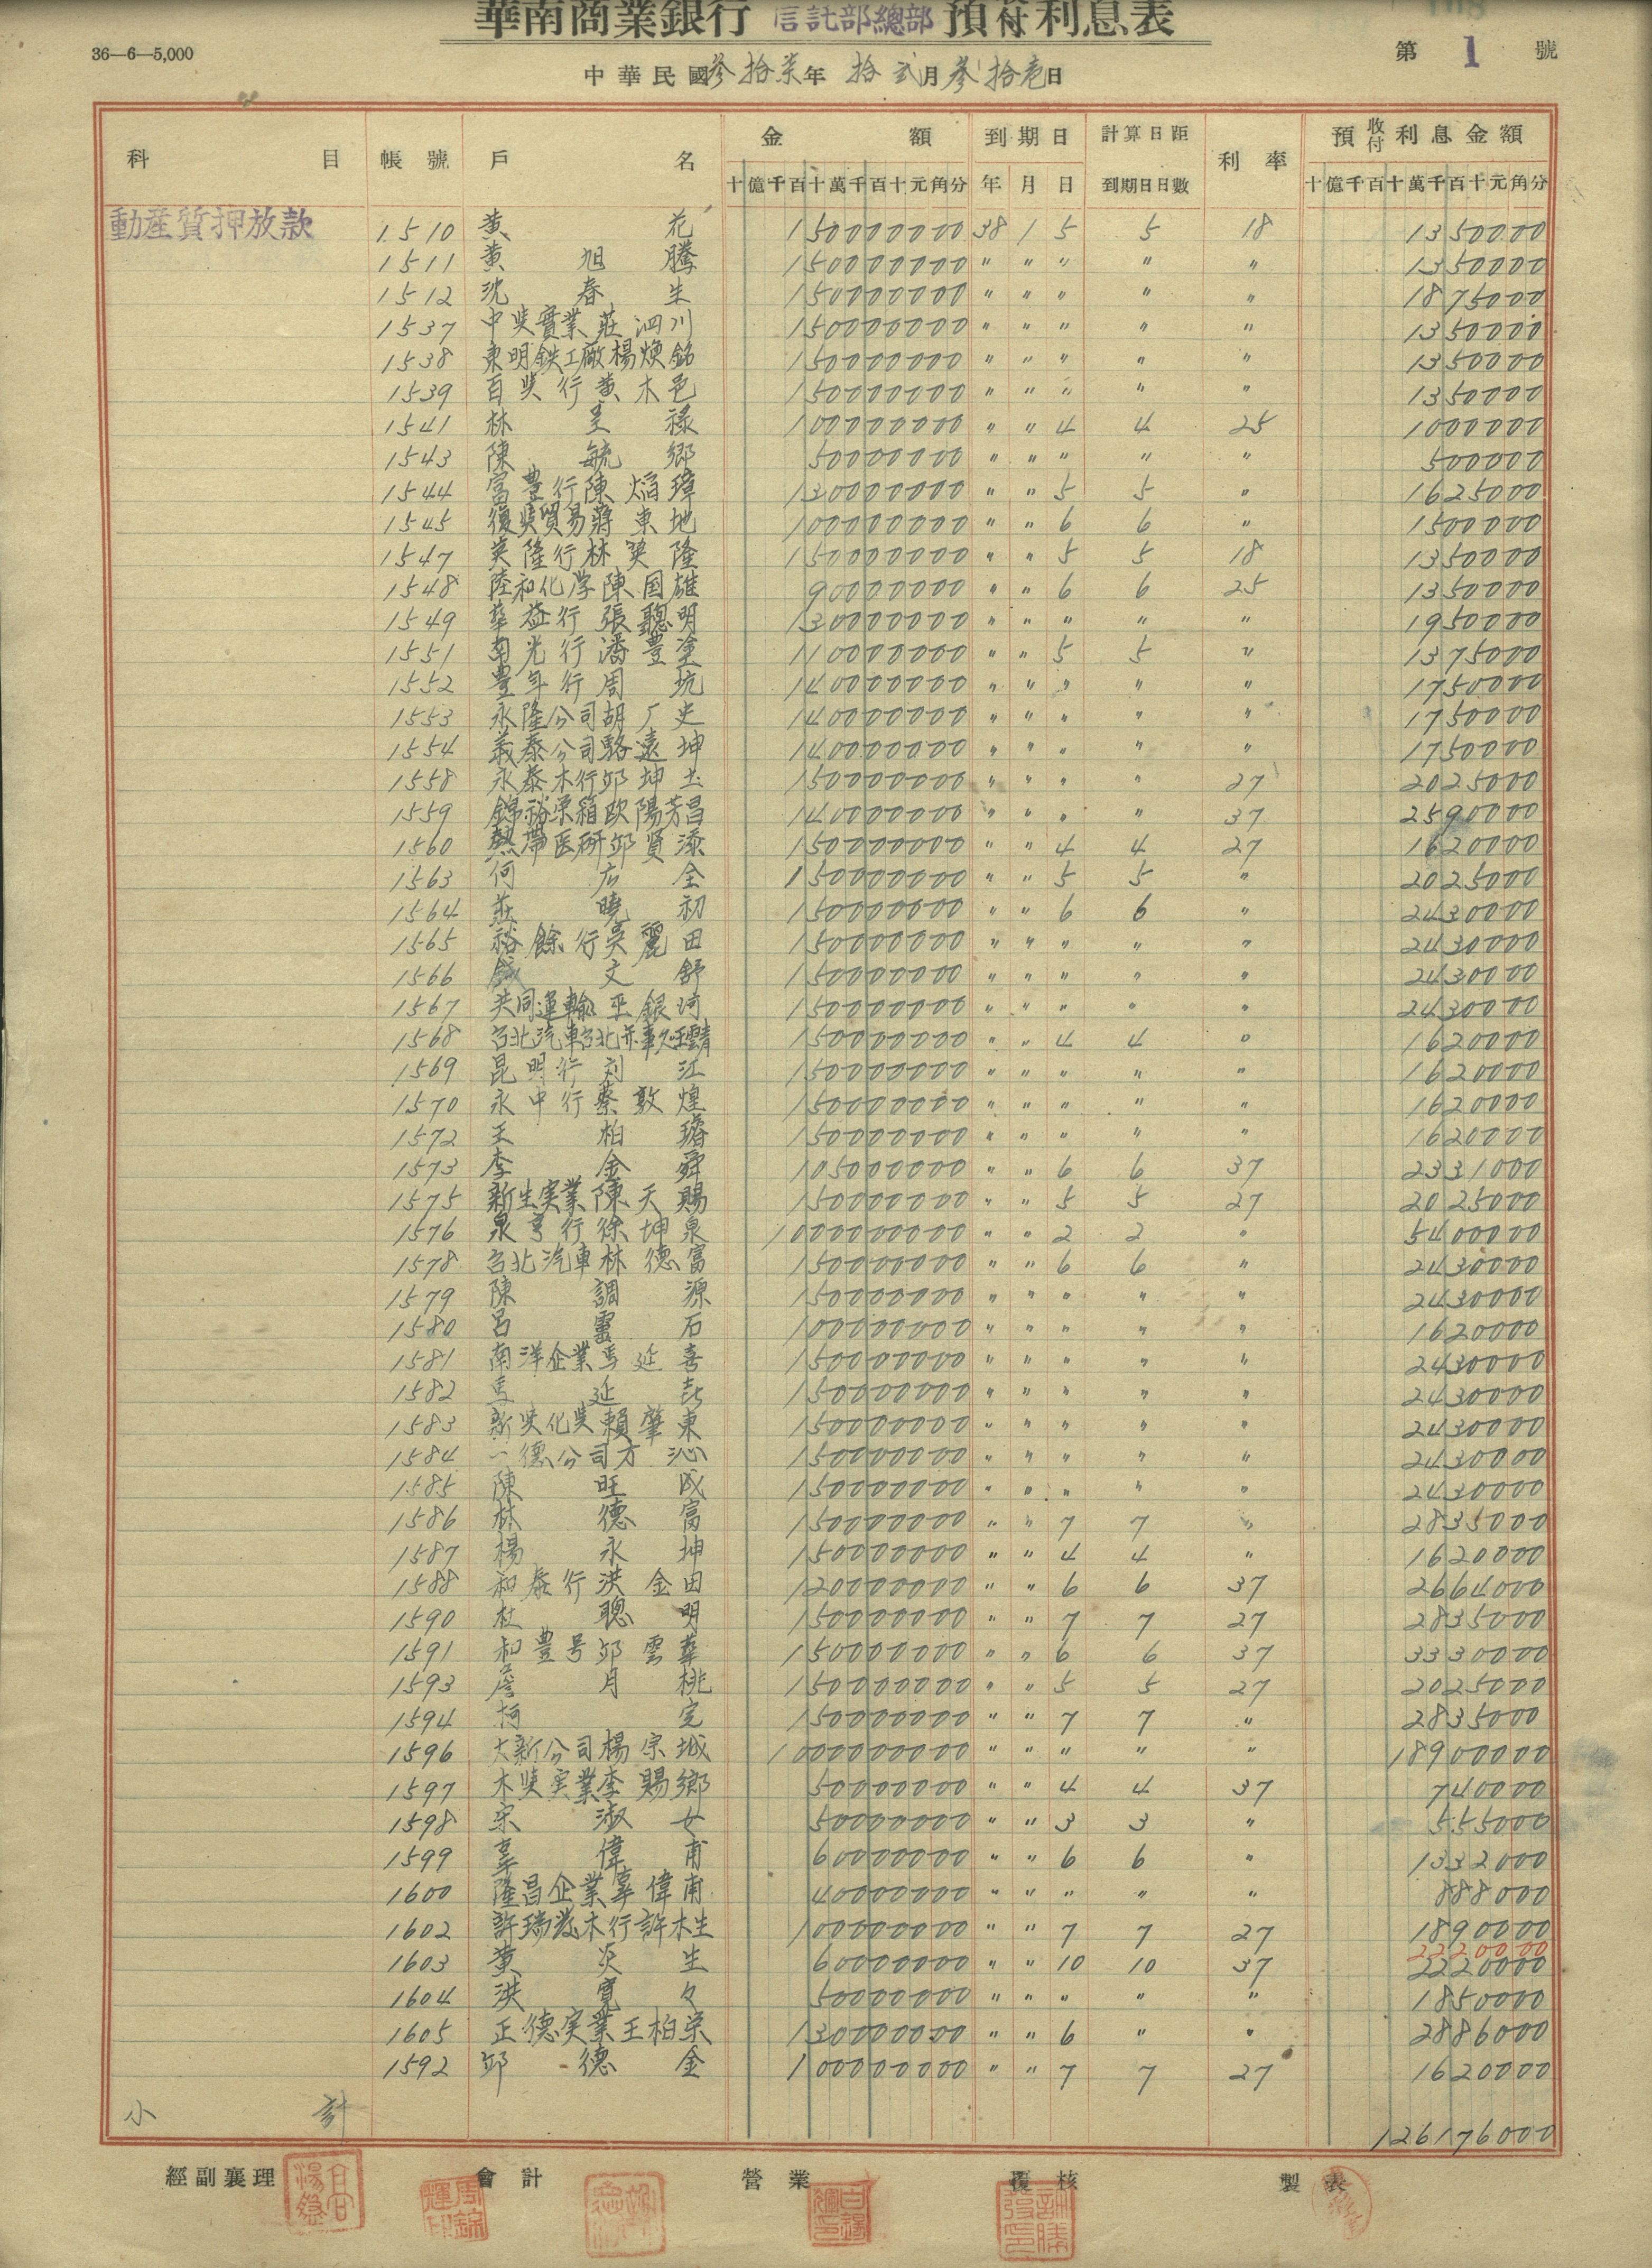 108
華南商業銀行 信託部總部 預收付利息表
36—6—5,000
第 1 號
中華民國參拾柒年 拾弍月參拾壱日
科目 帳號 戶名 金額 到期日 計算日距 利率 預收付利息金額
十億千百十萬千百十元角分 年 月 日 到期日日數 十億千百十萬千百十元角分
動産質押放款 1510 黃花 150000000 38 1 5 5 18 1350000
1511 黃旭騰 150000000 〃 〃 〃 〃 〃 1350000
1512 沈春生 150000000 〃 〃 〃 〃 〃 1875000
1537 中奘實業莊泗川 150000000 〃 〃 〃 〃 〃 1350000
1538 東明鉄工廠楊煥銘 150000000 〃 〃 〃 〃 〃 1350000
1539 百奘行黃木邑 150000000 〃 〃 〃 〃 〃 1350000
1541 林圭祿 100000000 〃 〃 4 4 25 1000000
1543 陳毓鄉 50000000 〃 〃 〃 〃 〃 500000
1544 富豊行陳焰璋 130000000 〃 〃 5 5 〃 1625000
1545 復奘貿易蔣東地 100000000 〃 〃 6 6 〃 1500000
1547 奘隆行林奘隆 150000000 〃 〃 5 5 18 1350000
1548 陸和化学陳国雄 90000000 〃 〃 6 6 25 1350000
1549 華益行張聰明 130000000 〃 〃 〃 〃 〃 1950000
1551 南光行潘豊塗 110000000 〃 〃 5 5 〃 1375000
1552 豊年行周坑 140000000 〃 〃 〃 〃 〃 1750000
1553 永隆公司胡厂史 140000000 〃 〃 〃 〃 〃 1750000
1554 義泰公司駱遠坤 140000000 〃 〃 〃 〃 〃 1750000
1558 永泰木行邱坤土 150000000 〃 〃 〃 〃 27 2025000
1559 錦裕栄箱歐陽芳昌 140000000 〃 〃 〃 〃 37 2590000
1560 熱帶医研邱賢添 150000000 〃 〃 4 4 27 1620000
1563 何広全 150000000 〃 〃 5 5 〃 2025000
1564 莊曉初 150000000 〃 〃 6 6 〃 2430000
1565 裕餘行吳麗田 150000000 〃 〃 〃 〃 〃 2430000
1566 文舒 150000000 〃 〃 〃 〃 〃 2430000
1567 共同運輸巫銀河 150000000 〃 〃 〃 〃 〃 2430000
1568 台北汽車台北 150000000 〃 〃 4 4 〃 1620000
1569 昆明行刘江 150000000 〃 〃 〃 〃 〃 1620000
1570 永中行蔡敦煌 150000000 〃 〃 〃 〃 〃 1620000
1572 王柏璿 150000000 〃 〃 〃 〃 〃 1620000
1573 李金舜 105000000 〃 〃 6 6 37 2331000
1575 新生実業陳天賜 150000000 〃 〃 5 5 27 2025000
1576 泉亨行徐坤泉 1000000000 〃 〃 2 2 〃 5400000
1578 台北汽車林德富 150000000 〃 〃 6 6 〃 2430000
1579 陳調源 150000000 〃 〃 〃 〃 〃 2430000
1580 呂靈石 100000000 〃 〃 〃 〃 〃 1620000
1581 南洋企業馬延喜 150000000 〃 〃 〃 〃 〃 2430000
1582 馬延喜 150000000 〃 〃 〃 〃 〃 2430000
1583 新奘化奘賴肇東 150000000 〃 〃 〃 〃 〃 2430000
1584 一德公司方沁 150000000 〃 〃 〃 〃 〃 2430000
1585 陳旺成 150000000 〃 〃 〃 〃 〃 2430000
1586 林德富 150000000 〃 〃 7 7 〃 2835000
1587 楊永坤 150000000 〃 〃 4 4 〃 1620000
1588 和泰行洪金田 120000000 〃 〃 6 6 37 2664000
1590 杜聰明 150000000 〃 〃 7 7 27 2835000
1591 和豊号邱雲華 150000000 〃 〃 6 6 37 3330000
1593 詹月桃 150000000 〃 〃 5 5 27 2025000
1594 柯完 150000000 〃 〃 7 7 〃 2835000
1596 大新公司楊宗城 1000000000 〃 〃 〃 〃 〃 18900000
1597 木奘実業李賜鄉 50000000 〃 〃 4 4 37 740000
1598 宋淑女 50000000 〃 〃 3 3 〃 555000
1599 辜偉甫 60000000 〃 〃 6 6 〃 1332000
1600 隆昌企業辜偉甫 40000000 〃 〃 〃 〃 〃 888000
1602 許瑞發木行許木生 100000000 〃 〃 7 7 27 1890000
2220000
1603 黃炎生 60000000 〃 〃 10 10 37 2220000
1604 洪寬々 50000000 〃 〃 〃 〃 〃 1850000
1605 正德実業王柏栄 130000000 〃 〃 6 〃 〃 2886000
1592 邱德金 100000000 〃 〃 7 7 27 1620000
小計 126176000
經副襄理 會計 營業 覆核 製表